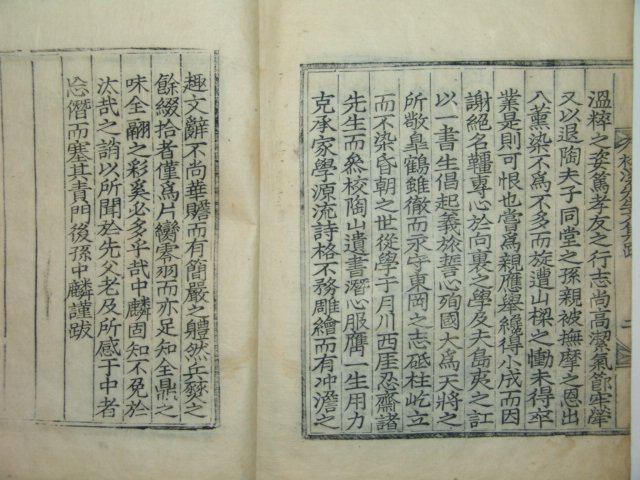 溫粹之姿篤孝友之行志尚高潔氣節牢犖
又以退陶夫子同堂之孫親被撫摩之恩出
入薰染不爲不多而旋遭山樑之慟未得卒
業是則可恨也嘗爲親應擧纔得小成而因
謝絕名韁專心於向裏之學及夫島夷之訌
以一書生倡起義旅誓心殉國大爲天將之
所敬皐鶴雖徹而永守東岡之志砥柱屹立
而不染昏朝之世從學于月川西厓忍齋諸
先生而叅校陶山遺書潛心服膺一生用力
克承家學源流詩格不務雕繪而有冲澹之
趣文辭不尚華贍而有簡嚴之軆然兵燹之
餘綴拾者僅爲片臠零羽而亦足知全鼎之
味全翮之彩奚必多乎哉中麟固知不免於
汰哉之誚以所聞於先父老及所感于中者
忘僭而塞其責門後孫中麟謹跋